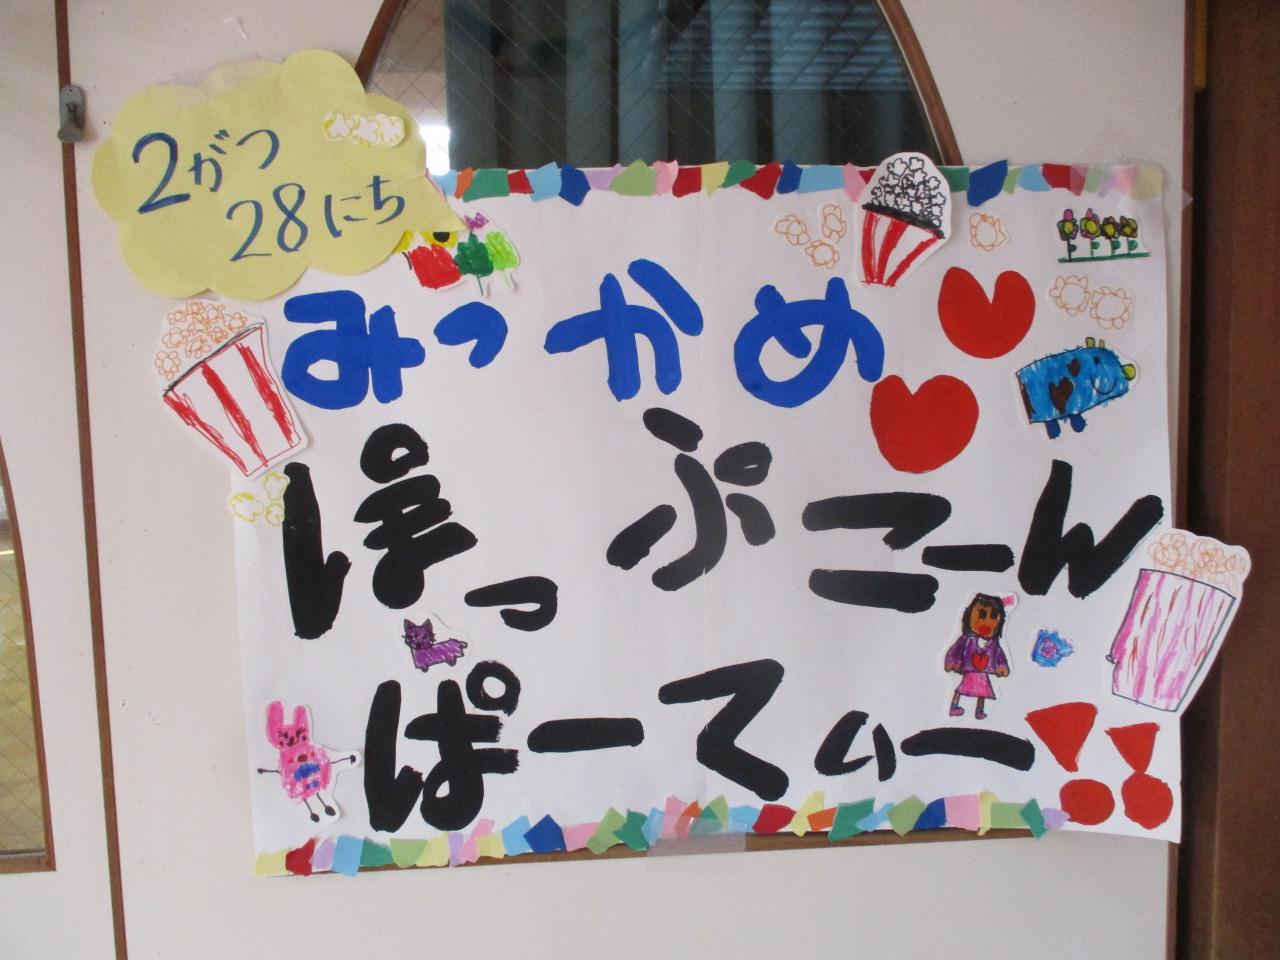 2がつ
28にち
みっかめ
ぽっぷこーん
ぱーてぃー!!